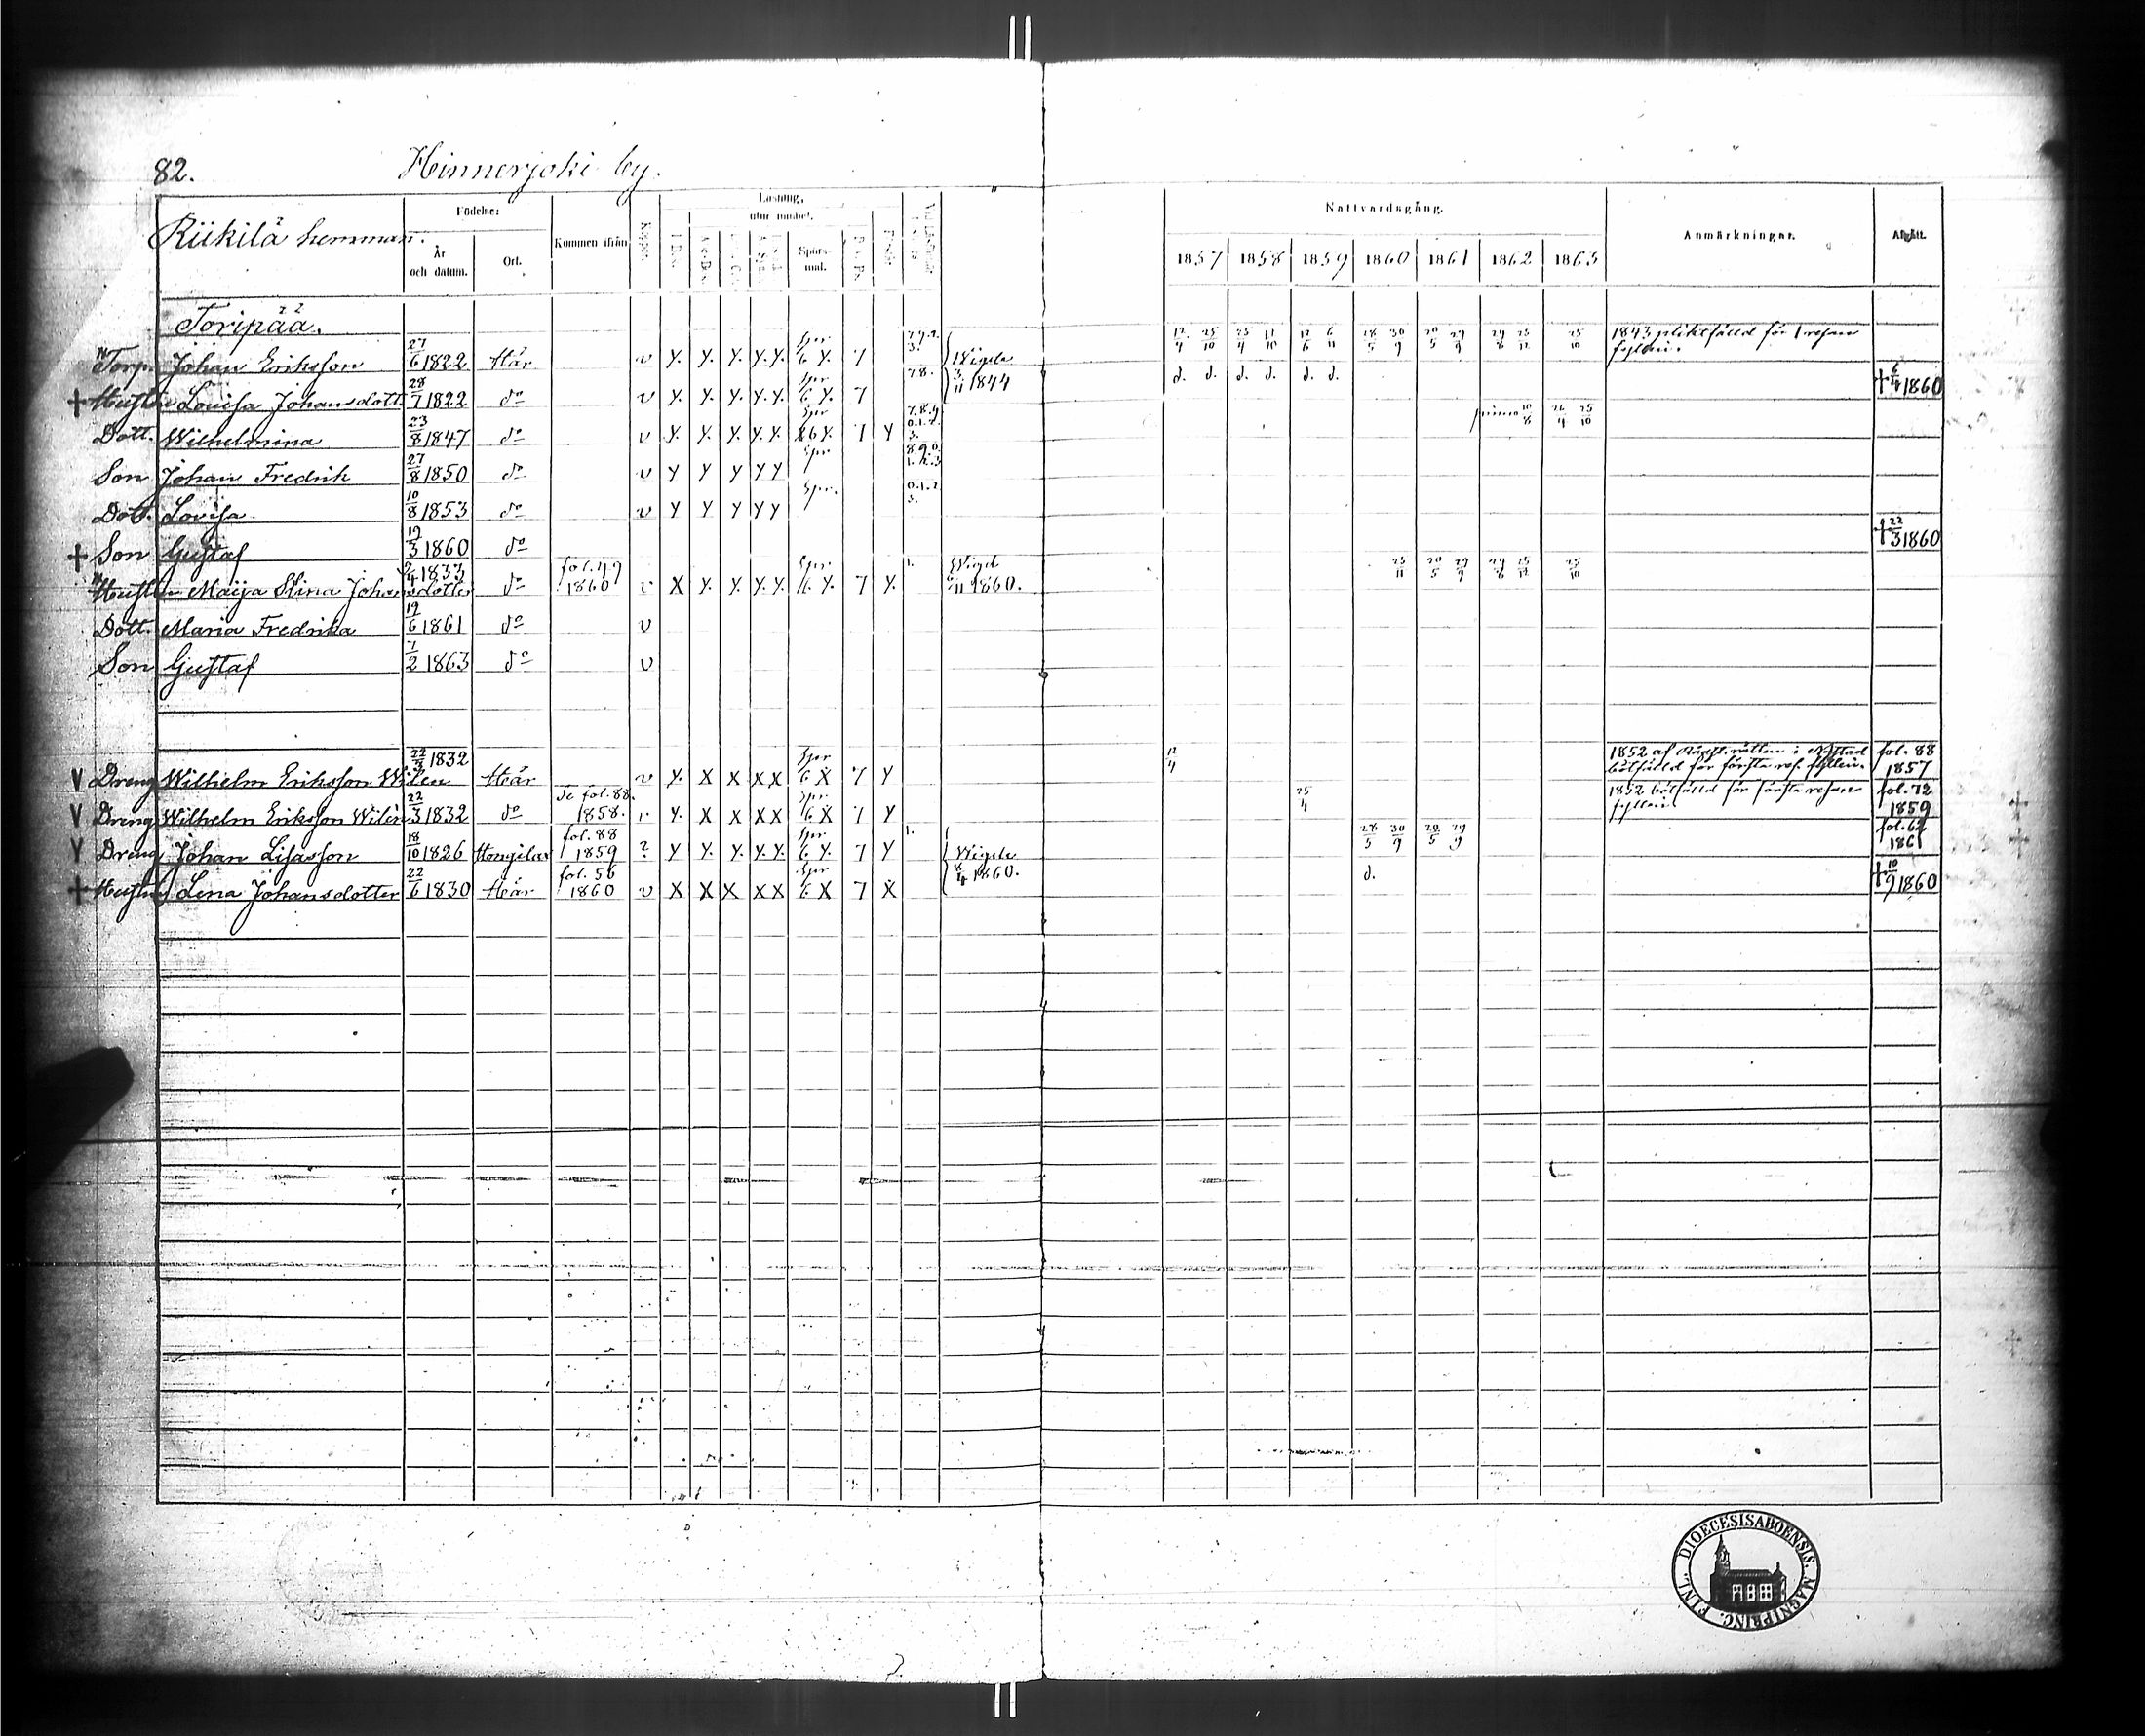 82. Hinnerjoki by.
Riikilä hemman.
Födelse:
År och datum.
Ort.
Kommen ifrån
Koppor.
Läsning,
utur minnet.
Spörsmål.
Nattvardsgång.
1857 1858 1859 1860 1861 1862 1863
Anmärkningar.
Afgått.
Toripää.
Torp. Johan Eriksson 27/6 1822 Här v y. y. y. y.y. Spr 6 y. 7 Wigde 3/11 1844 12/4 25/10 25/4 17/10 12/6 6/11 28/5 30/9 20/5 29/9 29/8 25/12 25/10 1843 pliktfälld för 1 resan fylleri.
+ Hustru Lovisa Johansdott 28/7 1822 do v y. y. y. y.y. Spr 6 y. 7 7.8. d. d. d. d. d. d. + 6/4 1860
Dott. Wilhelmina 23/8 1847 do v y. y. y. y.y. Spr 6 y. 7 y 7.8.9. 0.1.2. 3. primo 10/8 26/4 25/10
Son Johan Fredrik 27/8 1850 do v y y y y y Spr 8.9.0. 1.2.3
Dott. Lovisa 10/8 1853 do v y y y y y Spr. 0.1.2. 3.
+ Son Gustaf 19/3 1860 do + 22/3 1860
Hustru Maija Stina Johansdotter 2/4 1833 do fol. 49 1860 v X y. y. y.y. Spr 6 y. 7 y. 1. Wigd 6/11 1860. 25/11 20/5 29/9 29/8 25/12 25/10
Dott. Maria Fredrika 19/6 1861 do v
Son Gustaf 7/2 1863 do v
V Dreng Wilhelm Eriksson Wilen 22/3 1832 Här v y. X X X X Spr 6 X 7 y 12/4 1852 af i Nystad bötfälld för första res. fylleri. fol. 88 1857
V Dreng Wilhelm Eriksson Wilén 22/3 1832 do fol. 88. 1858. v y. X X X X Spr 6 X 7 y 25/4 1852 bötfälld för första resan fylleri. fol. 72 1859
V Dreng Johan Lisasson 18/10 1826 fol. 88 1859 ? y y. y. y.y. Spr 6 y. 7 y 1. Wigde 8/4 1860. 28/5 30/9 20/5 29/9 fol. 62 1861
+ Hustru Lena Johansdotter 22/6 1830 Här fol. 56 1860 v X X X X X Spr 6 X 7 X d. + 10/9 1860
DIOECESIS ABOENSIS. MAGNI PRINC. FINL.